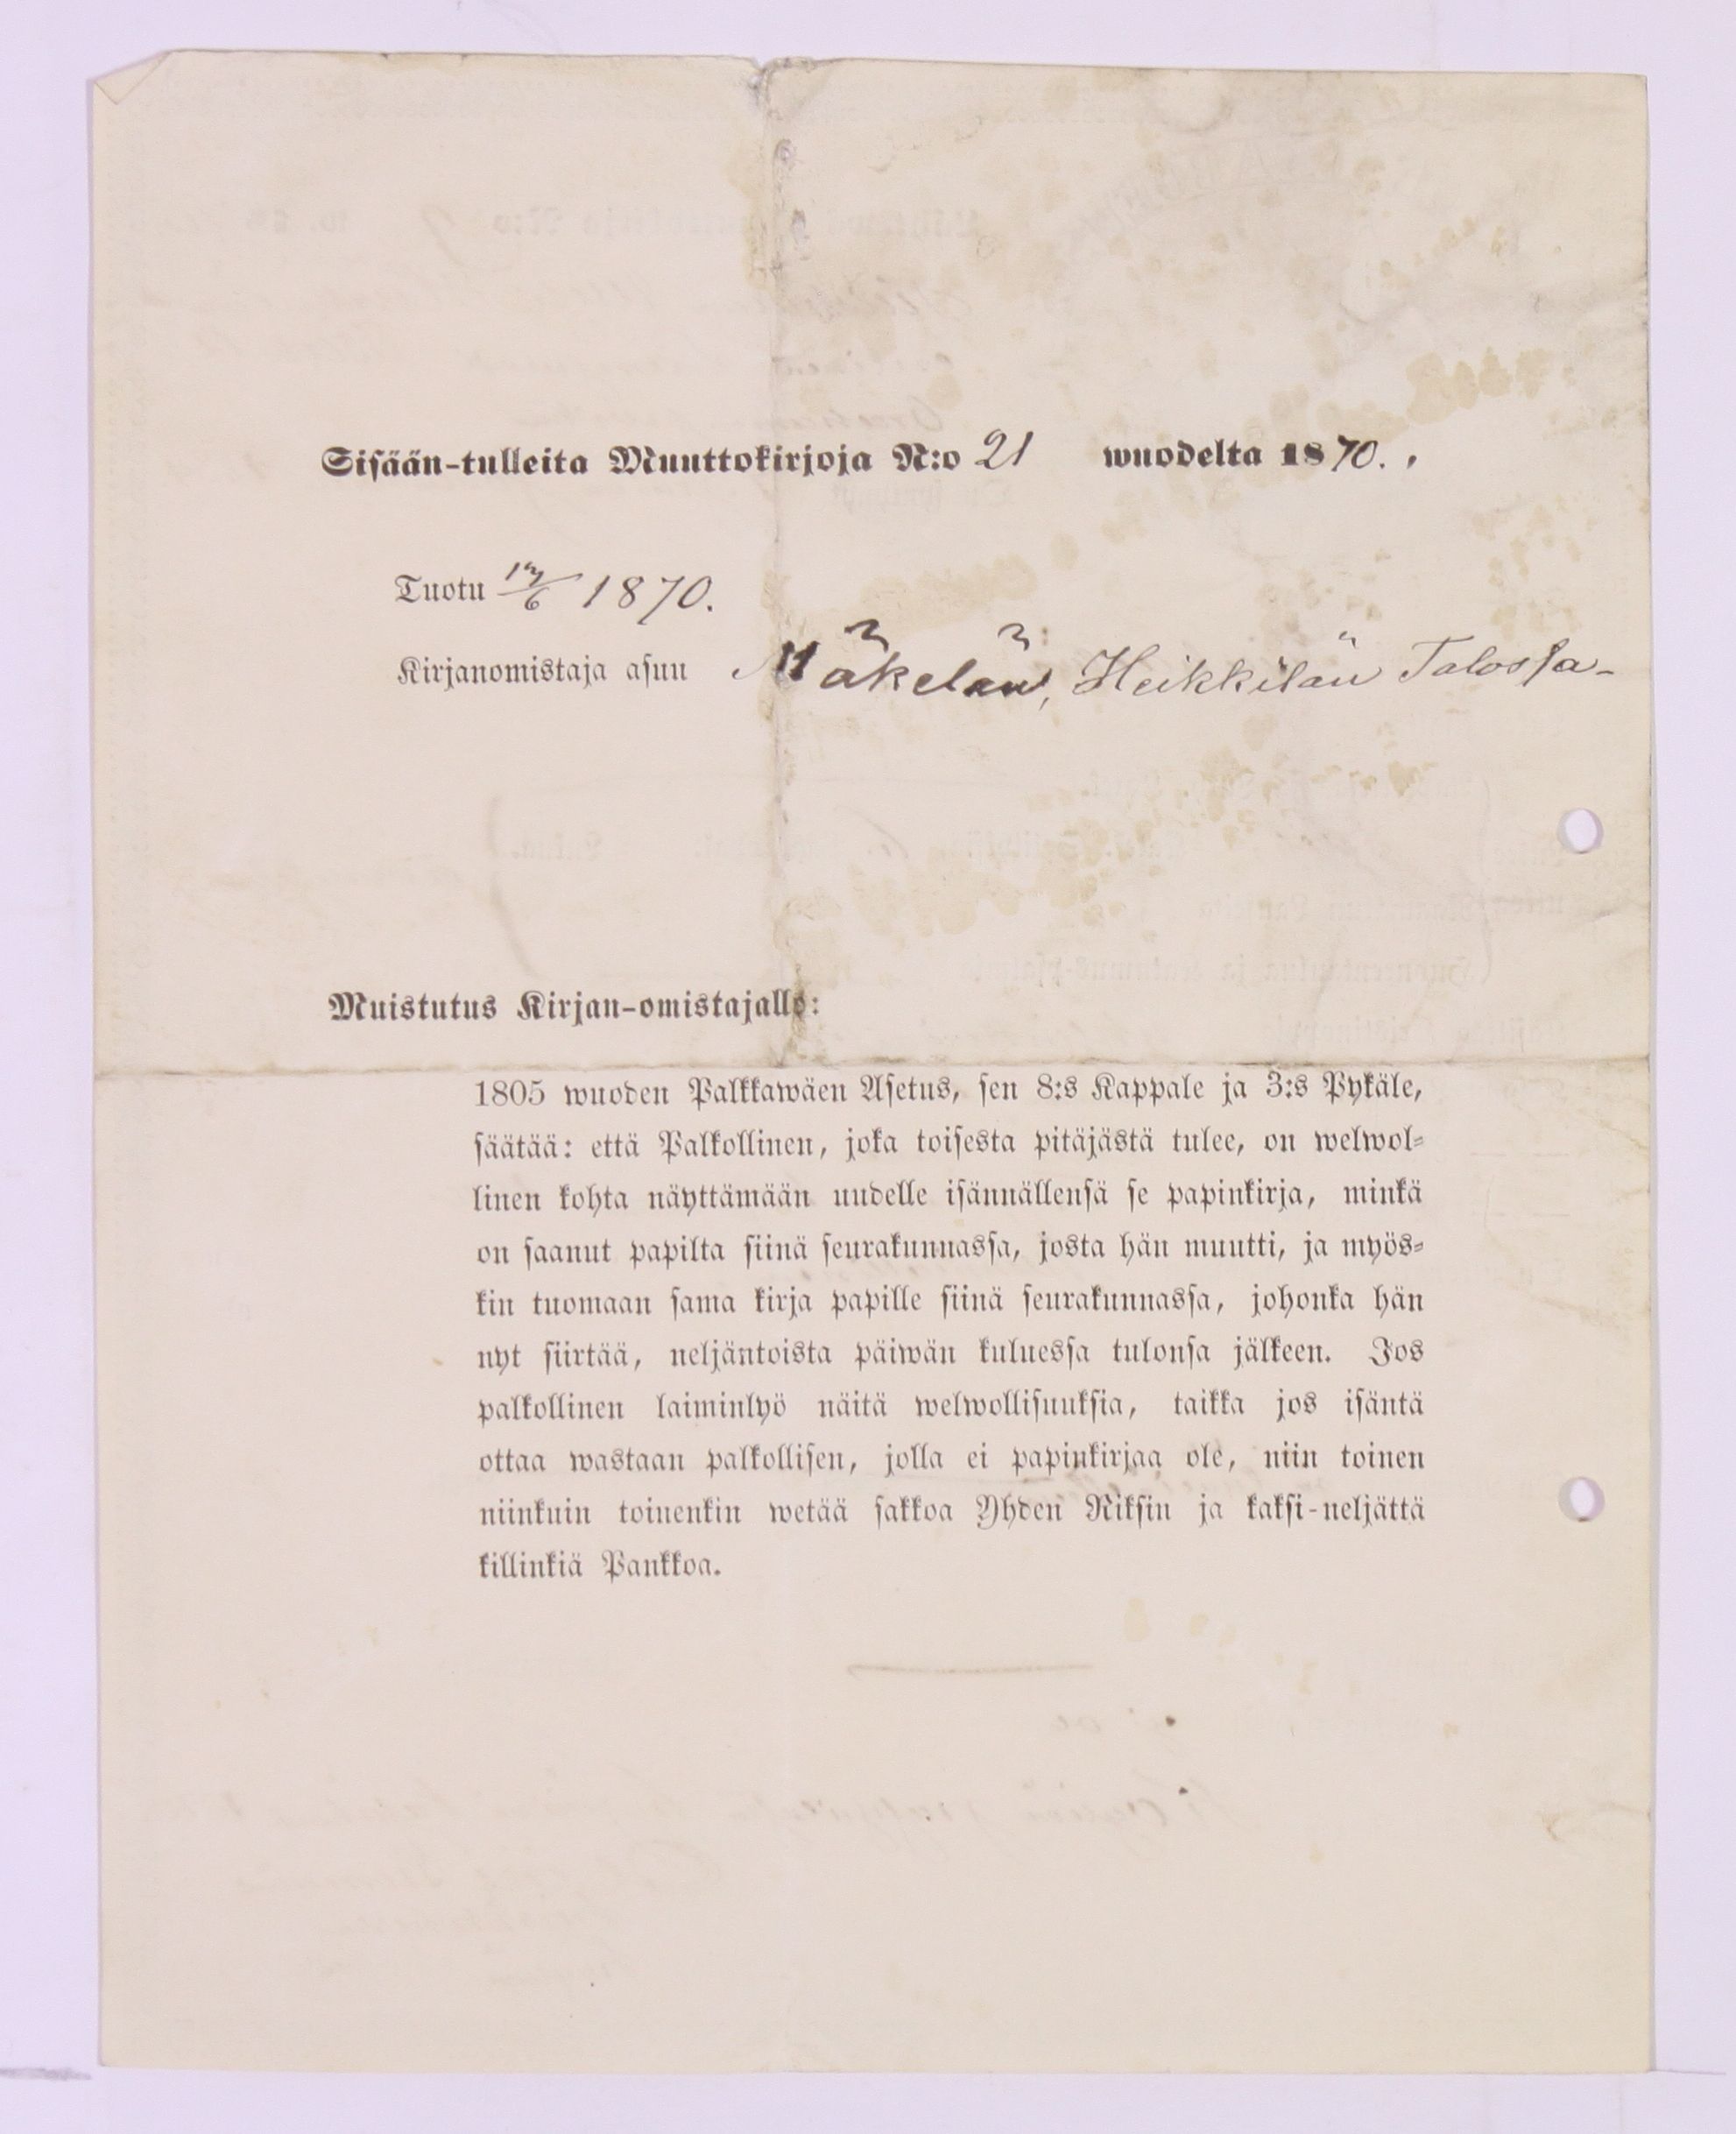 Sisään-tulleita Muuttokirjoja N:o 21 wuodelta 1870.
Tuotu 17/6 1870.
Kirjanomistaja asuu Mäkelän, Heikkilän Talossa-
Muistutus Kirjan-omistajalle:
1805 wuoden Palkkawäen Asetus, sen 8:s Kappale ja 3:s Pykäle,
säätää: että Palkollinen, joka toisesta pitäjästä tulee, on welwol-
linen kohta näyttämään uudelle isännällensä se papinkirja, minkä
on saanut papilta siinä seurakunnassa, josta hän muutti, ja myös-
kin tuomaan sama kirja papille siinä seurakunnassa, johonka hän
nyt siirtää, neljäntoista päiwän kuluessa tulonsa jälkeen. Jos
palkollinen laiminlyö näitä welwollisuuksia, taikka jos isäntä
ottaa wastaan palkollisen, jolla ei papinkirjaa ole, niin toinen
niinkuin toinenkin wetää sakkoa Yhden Riksin ja kaksi-neljättä
killinkiä Pankkoa.